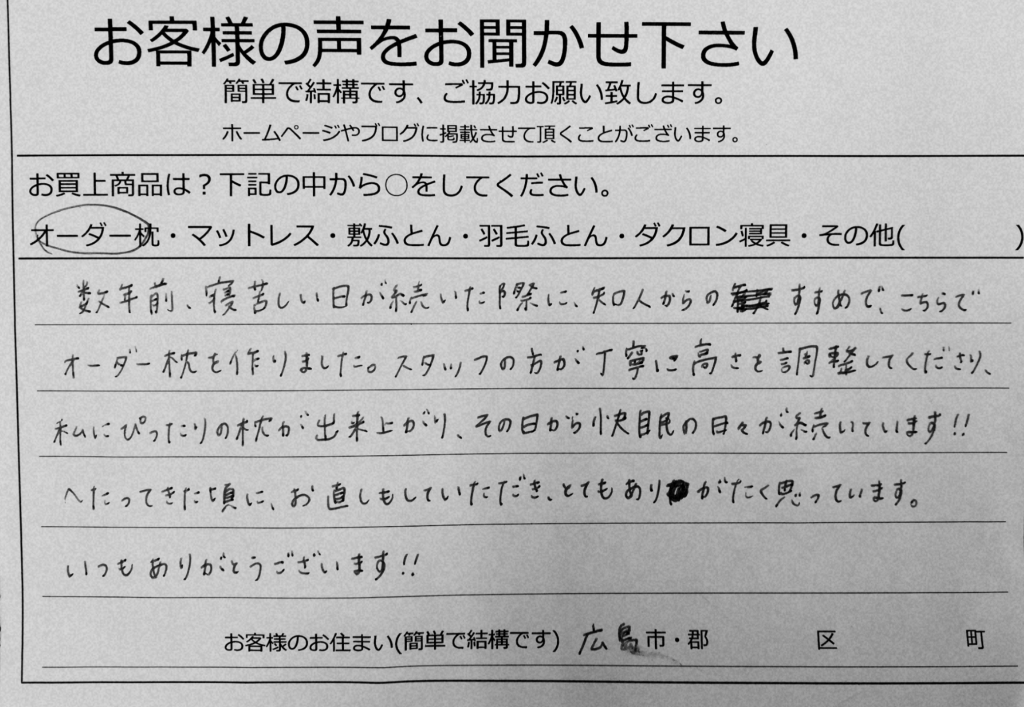 お客様の声をお聞かせ下さい
簡単で結構です、ご協力お願い致します。
ホームページやブログに掲載させて頂くことがございます。
お買上商品は？下記の中から○をしてください。
オーダー枕・マットレス・敷ふとん・羽毛ふとん・ダクロン寝具・その他( )
数年前、寝苦しい日が続いた際に、知人からのすすめで、こちらで
オーダー枕を作りました。スタッフの方が丁寧に高さを調整してくださり、
私にぴったりの枕が出来上がり、その日から快眠の日々が続いています!!
へたってきた頃に、お直しもしていただき、とてもありがたく思っています。
いつもありがとうございます!!
お客様のお住まい(簡単で結構です) 広島市・郡 区 町